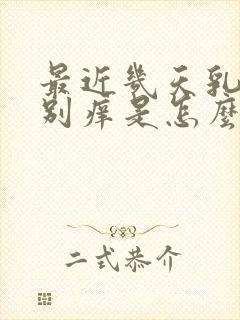 最近几天乳
别痒是怎麼
二式恭介